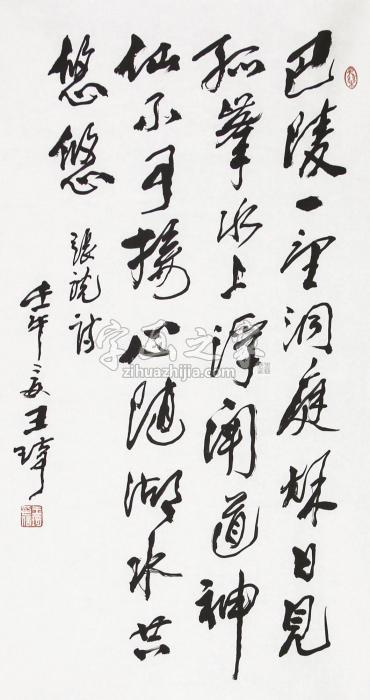 巴陵一望洞庭秋日見
孤峯水上浮聞道神
仙不可接心隨湖水共
悠悠
張說詩
壬午夏王
字画之家
www.zihuazhijia.com